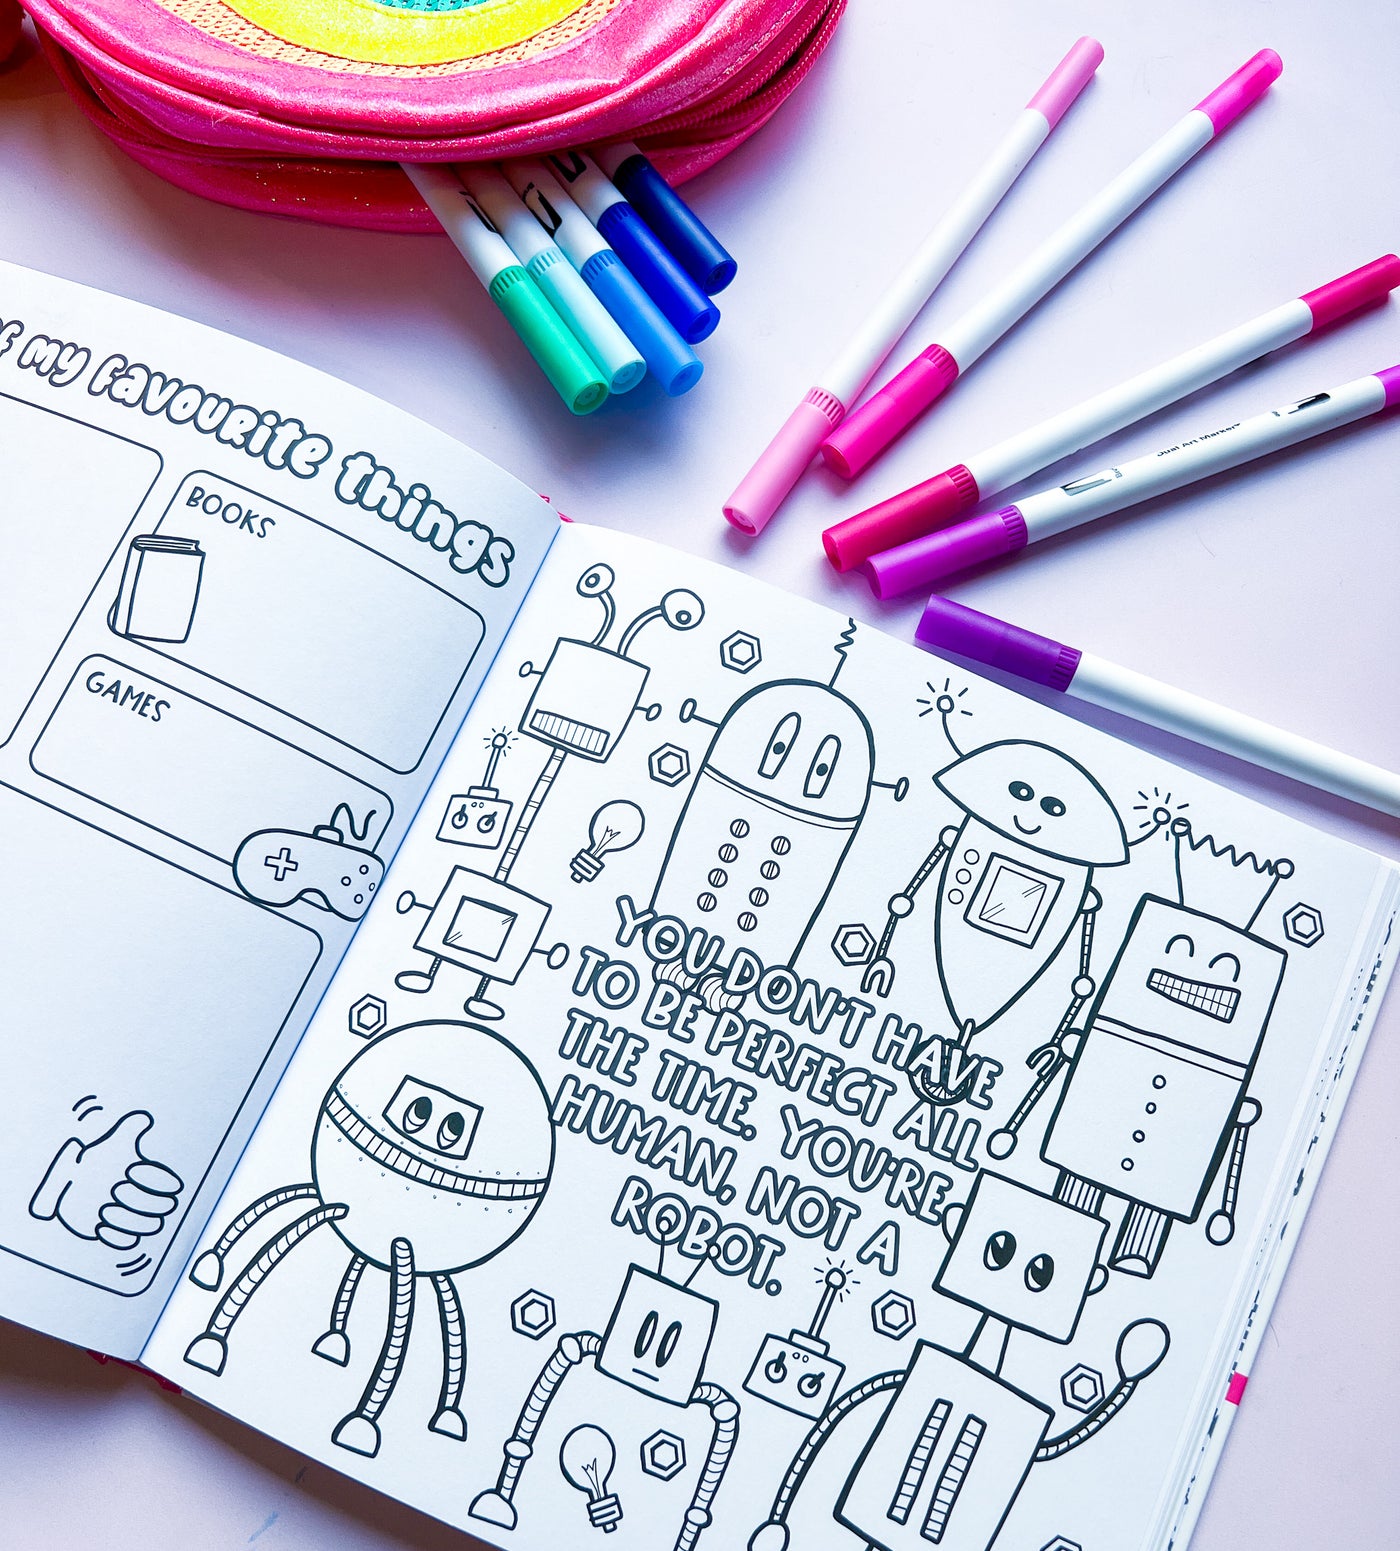 of my favourite things
BOOKS
GAMES
YOU DON'T HAVE
TO BE PERFECT ALL
THE TIME. YOU'RE
HUMAN, NOT A
ROBOT.
Dual Art Marker